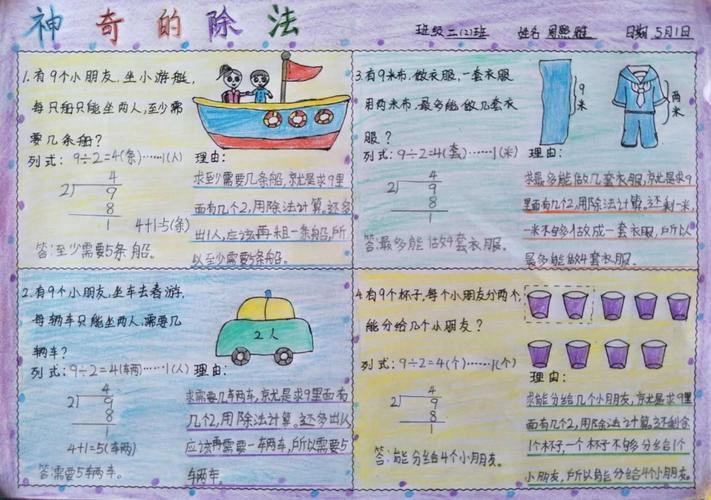 神奇的除法
班级二(2)班 姓名周熙雅 日期5月1日
1.有9个小朋友,坐小游艇,
每只船只能坐两人,至少需
要几条船?
列式:9÷2=4(条)……1(人)
4
2 9
8
1
4+1=5(条)
答:至少需要5条船。
理由:
求至少需要几条船,就是求9里
面有几个2,用除法计算,还多
出1人,应该再租一条船,所
以至少需要5条船。
3.有9米布,做衣服,一套衣服
用两米布,最多能做几套衣
服?
9米
两米
列式:9÷2=4(套)……1(米)
4
2 9
8
1
答:最多能做4套衣服。
理由:
求最多能做几套衣服,就是求9
里面有几个2,用除法计算,还剩一米,
一米不够做成一套衣服,所以
最多能做4套衣服。
2.有9个小朋友,坐车去春游,
每辆车只能坐两人,需要几
辆车?
2人
列式:9÷2=4(车两)……1(人)
4
2 9
8
1
4+1=5(车两)
答:需要5车两车。
理由:
求需要几车两车,就是求9里面有
几个2,用除法计算,还多出1人
应该再需要一车两车,所以需要5
车两车。
4.有9个杯子,每个小朋友分两个,
能分给几个小朋友?
列式:9÷2=4(个)……1(个)
4
2 9
8
1
答:能分给4个小朋友。
理由:
求能分给几个小朋友,就是求9里
面有几个2,用除法计算,还剩余
1个杯子,一个杯子不够分给1个
小朋友,所以能分给4个小朋友。